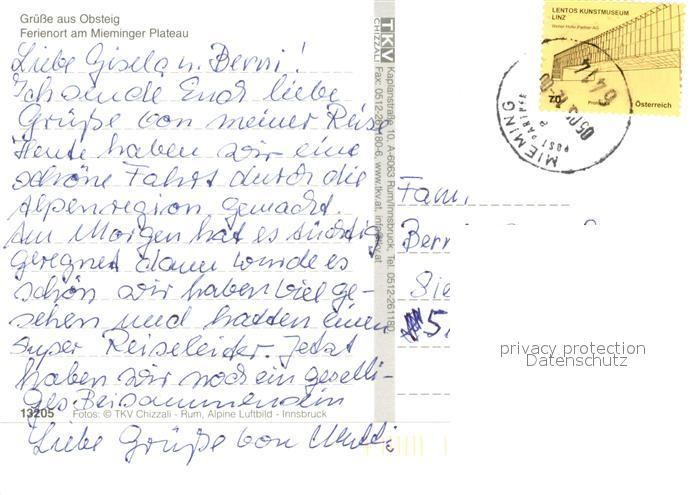 Grüße aus Obsteig
Ferienort am Mieminger Plateau
Liebe Gisela u. Berni!
Ich sende Euch liebe
Grüße von meiner Reise
Heute haben wir eine
schöne Fahrt durch die
Alpenregion gemacht.
Am Morgen hat es tüchtig
geregnet dann wurde es
schön wir haben viel ge-
sehen und hatten einen
super Reiseleiter. Jetzt
haben wir noch ein geselli-
ges Beisammensein
13205 Fotos: © TKV Chizzali - Rum, Alpine Luftbild - Innsbruck
Liebe Grüße von Mutti
TKV
CHIZZALI
Kaplanstraße 10, A-6063 Rum/Innsbruck, Tel. 0512-261180
Fax: 0512-261180-6, www.tkv.at, info@tkv.at
LENTOS KUNSTMUSEUM
LINZ
Österreich
MIEMING
Fam.
Bern
Sie
5
privacy protection
Datenschutz